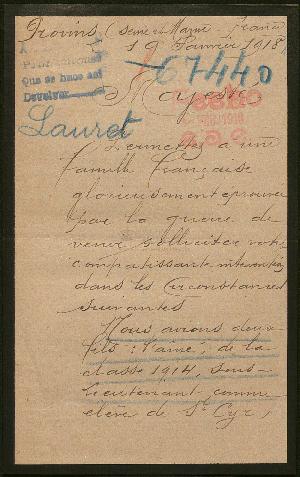 Provins (Seine et Marne - France)
19 Janvier 1918
67440
Que se hace así
Devolver
Lauret
Majesté
Permettez à une
famille française
glorieusement éprouvée
par la guerre de
venir solliciter votre
compatissante intervention
dans les circonstances
suivantes
Nous avions deux
fils : l'ainé, de la
classe 1914, sous-
lieutenant comme
élève de St Cyr,